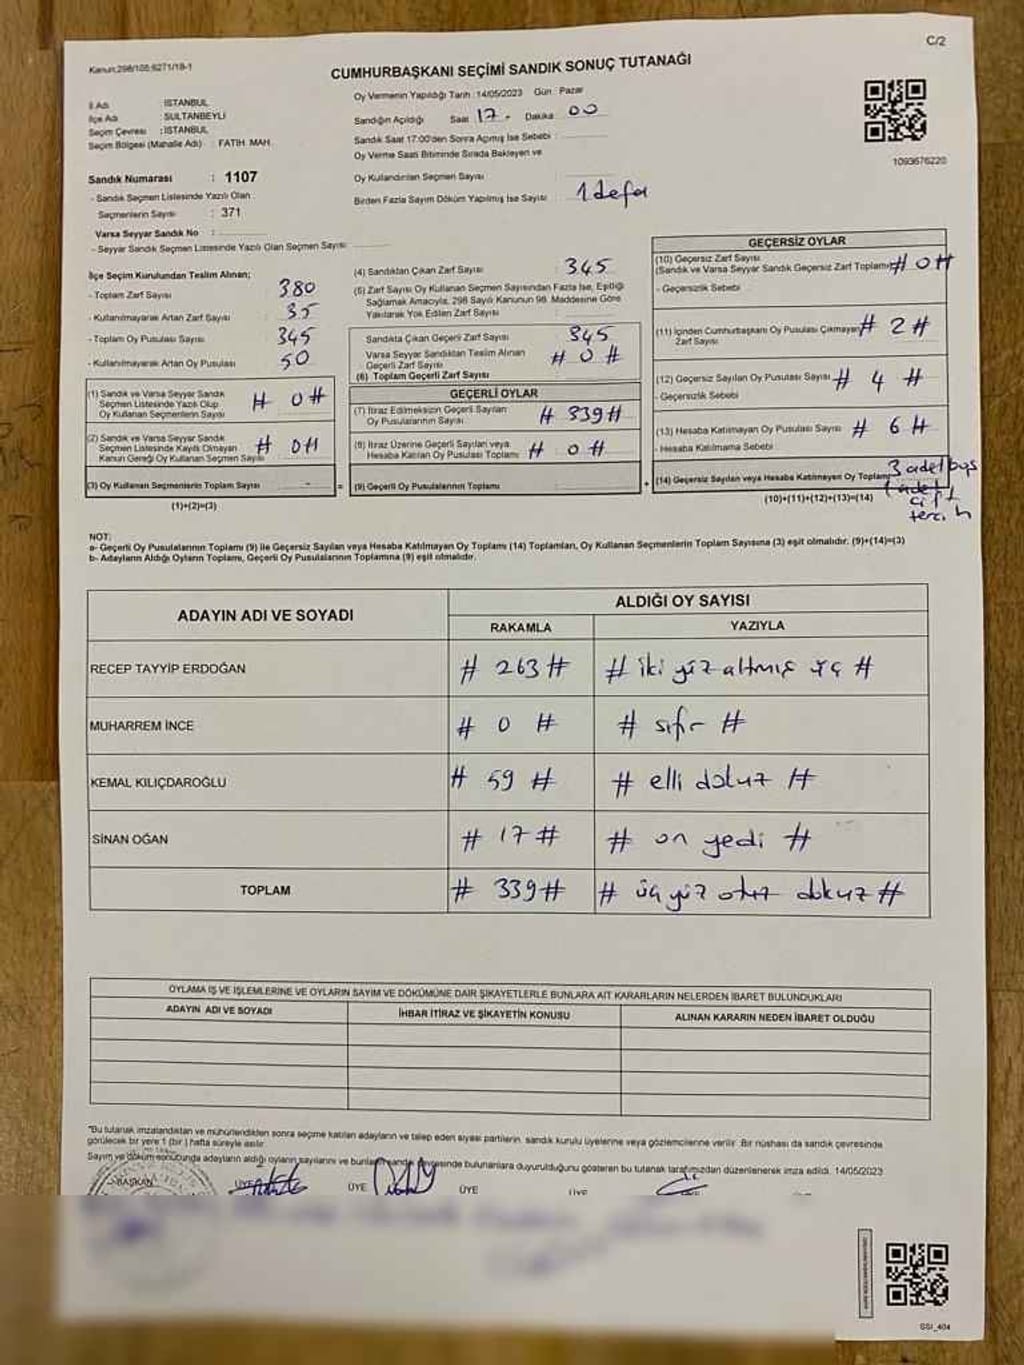 C/2
Kanun:298/105.6271/18-1
CUMHURBAŞKANI SEÇİMİ SANDIK SONUÇ TUTANAĞI
İl Adı : İSTANBUL
İlçe Adı : SULTANBEYLİ
Seçim Çevresi : İSTANBUL
Seçim Bölgesi (Mahalle Adı) : FATİH MAH.
Sandık Numarası : 1107
- Sandık Seçmen Listesinde Yazılı Olan
Seçmenlerin Sayısı : 371
Varsa Seyyar Sandık No :
- Seyyar Sandık Seçmen Listesinde Yazılı Olan Seçmen Sayısı:
Oy Vermenin Yapıldığı Tarih :14/05/2023 Gün : Pazar
Sandığın Açıldığı Saat 17. Dakika 00
Sandık Saat 17:00'den Sonra Açılmış İse Sebebi :
Oy Verme Saati Bitiminde Sırada Bekleyen ve
Oy Kullandırılan Seçmen Sayısı
Birden Fazla Sayım Döküm Yapılmış İse Sayısı : 1 defa
1093676220
İlçe Seçim Kurulundan Teslim Alınan;
- Toplam Zarf Sayısı 380
- Kullanılmayarak Artan Zarf Sayısı : 35
- Toplam Oy Pusulası Sayısı : 345
- Kullanılmayarak Artan Oy Pusulası : 50
(1) Sandık ve Varsa Seyyar Sandık
Seçmen Listesinde Yazılı Olup
Oy Kullanan Seçmenlerin Sayısı # 0 #
(2) Sandık ve Varsa Seyyar Sandık
Seçmen Listesinde Kaydı Olmayan
Kanun Gereği Oy Kullanan Seçmen Sayısı # 0 #
(3) Oy Kullanan Seçmenlerin Toplam Sayısı - =
(1)+(2)=(3)
(4) Sandıktan Çıkan Zarf Sayısı : 345
(5) Zarf Sayısı Oy Kullanan Seçmen Sayısından Fazla İse, Eşitliği
Sağlamak Amacıyla, 298 Sayılı Kanunun 98. Maddesine Göre
Yakılarak Yok Edilen Zarf Sayısı :
Sandıkta Çıkan Geçerli Zarf Sayısı : 345
Varsa Seyyar Sandıktan Teslim Alınan
Geçerli Zarf Sayısı # 0 #
(6) Toplam Geçerli Zarf Sayısı
GEÇERLİ OYLAR
(7) İtiraz Edilmeksizin Geçerli Sayılan
Oy Pusulasının Sayısı # 339 #
(8) İtiraz Üzerine Geçerli Sayılan veya
Hesaba Katılan Oy Pusulası Toplamı # 0 #
(9) Geçerli Oy Pusulalarının Toplamı +
GEÇERSİZ OYLAR
(10) Geçersiz Zarf Sayısı
(Sandık ve Varsa Seyyar Sandık Geçersiz Zarf Toplamı) # 0 #
- Geçersizlik Sebebi
(11) İçinden Cumhurbaşkanı Oy Pusulası Çıkmayan
Zarf Sayısı # 2 #
(12) Geçersiz Sayılan Oy Pusulası Sayısı # 4 #
- Geçersizlik Sebebi
(13) Hesaba Katılmayan Oy Pusulası Sayısı # 6 #
- Hesaba Katılmama Sebebi
(14) Geçersiz Sayılan veya Hesaba Katılmayan Oy Toplamı 3 adet boş
1 adet
çift
tercih
(10)+(11)+(12)+(13)=(14)
NOT:
a- Geçerli Oy Pusulalarının Toplamı (9) ile Geçersiz Sayılan veya Hesaba Katılmayan Oy Toplamı (14) Toplamları, Oy Kullanan Seçmenlerin Toplam Sayısına (3) eşit olmalıdır. (9)+(14)=(3)
b- Adayların Aldığı Oyların Toplamı, Geçerli Oy Pusulalarının Toplamına (9) eşit olmalıdır.
ADAYIN ADI VE SOYADI ALDIĞI OY SAYISI
RAKAMLA YAZIYLA
RECEP TAYYİP ERDOĞAN # 263 # # iki yüz altmış üç #
MUHARREM İNCE # 0 # # sıfır #
KEMAL KILIÇDAROĞLU # 59 # # elli dokuz #
SİNAN OĞAN # 17 # # on yedi #
TOPLAM # 339 # # üç yüz otuz dokuz #
OYLAMA İŞ VE İŞLEMLERİNE VE OYLARIN SAYIM VE DÖKÜMÜNE DAİR ŞİKAYETLERLE BUNLARA AİT KARARLARIN NELERDEN İBARET BULUNDUKLARI
ADAYIN ADI VE SOYADI İHBAR İTİRAZ VE ŞİKAYETİN KONUSU ALINAN KARARIN NEDEN İBARET OLDUĞU
"Bu tutanak imzalandıktan ve mühürlendikten sonra seçime katılan adayların ve talep eden siyasi partilerin, sandık kurulu üyelerine veya gözlemcilerine verilir. Bir nüshası da sandık çevresinde
görülecek bir yere 1 (bir) hafta süreyle asılır.
Sayım ve döküm sonucunda adayların aldığı oyların sayılarını ve bunların sandık çevresinde bulunanlara duyurulduğunu gösteren bu tutanak tarafımızdan düzenlenerek imza edildi. 14/05/2023
BAŞKAN ÜYE ÜYE ÜYE ÜYE
SSI_404